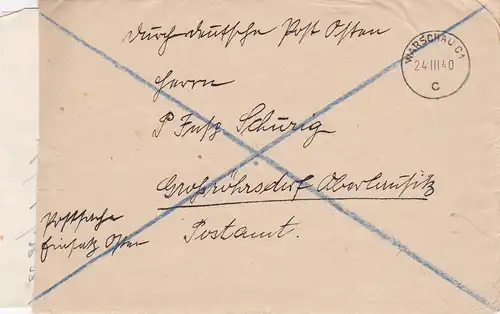 durch deutsche Post Osten
WARSCHAU C1
24.III.40
C
Herrn
P Fritz Schurig
Großröhrsdorf Oberlausitz
Postamt.
Postsache
Einsatz Osten